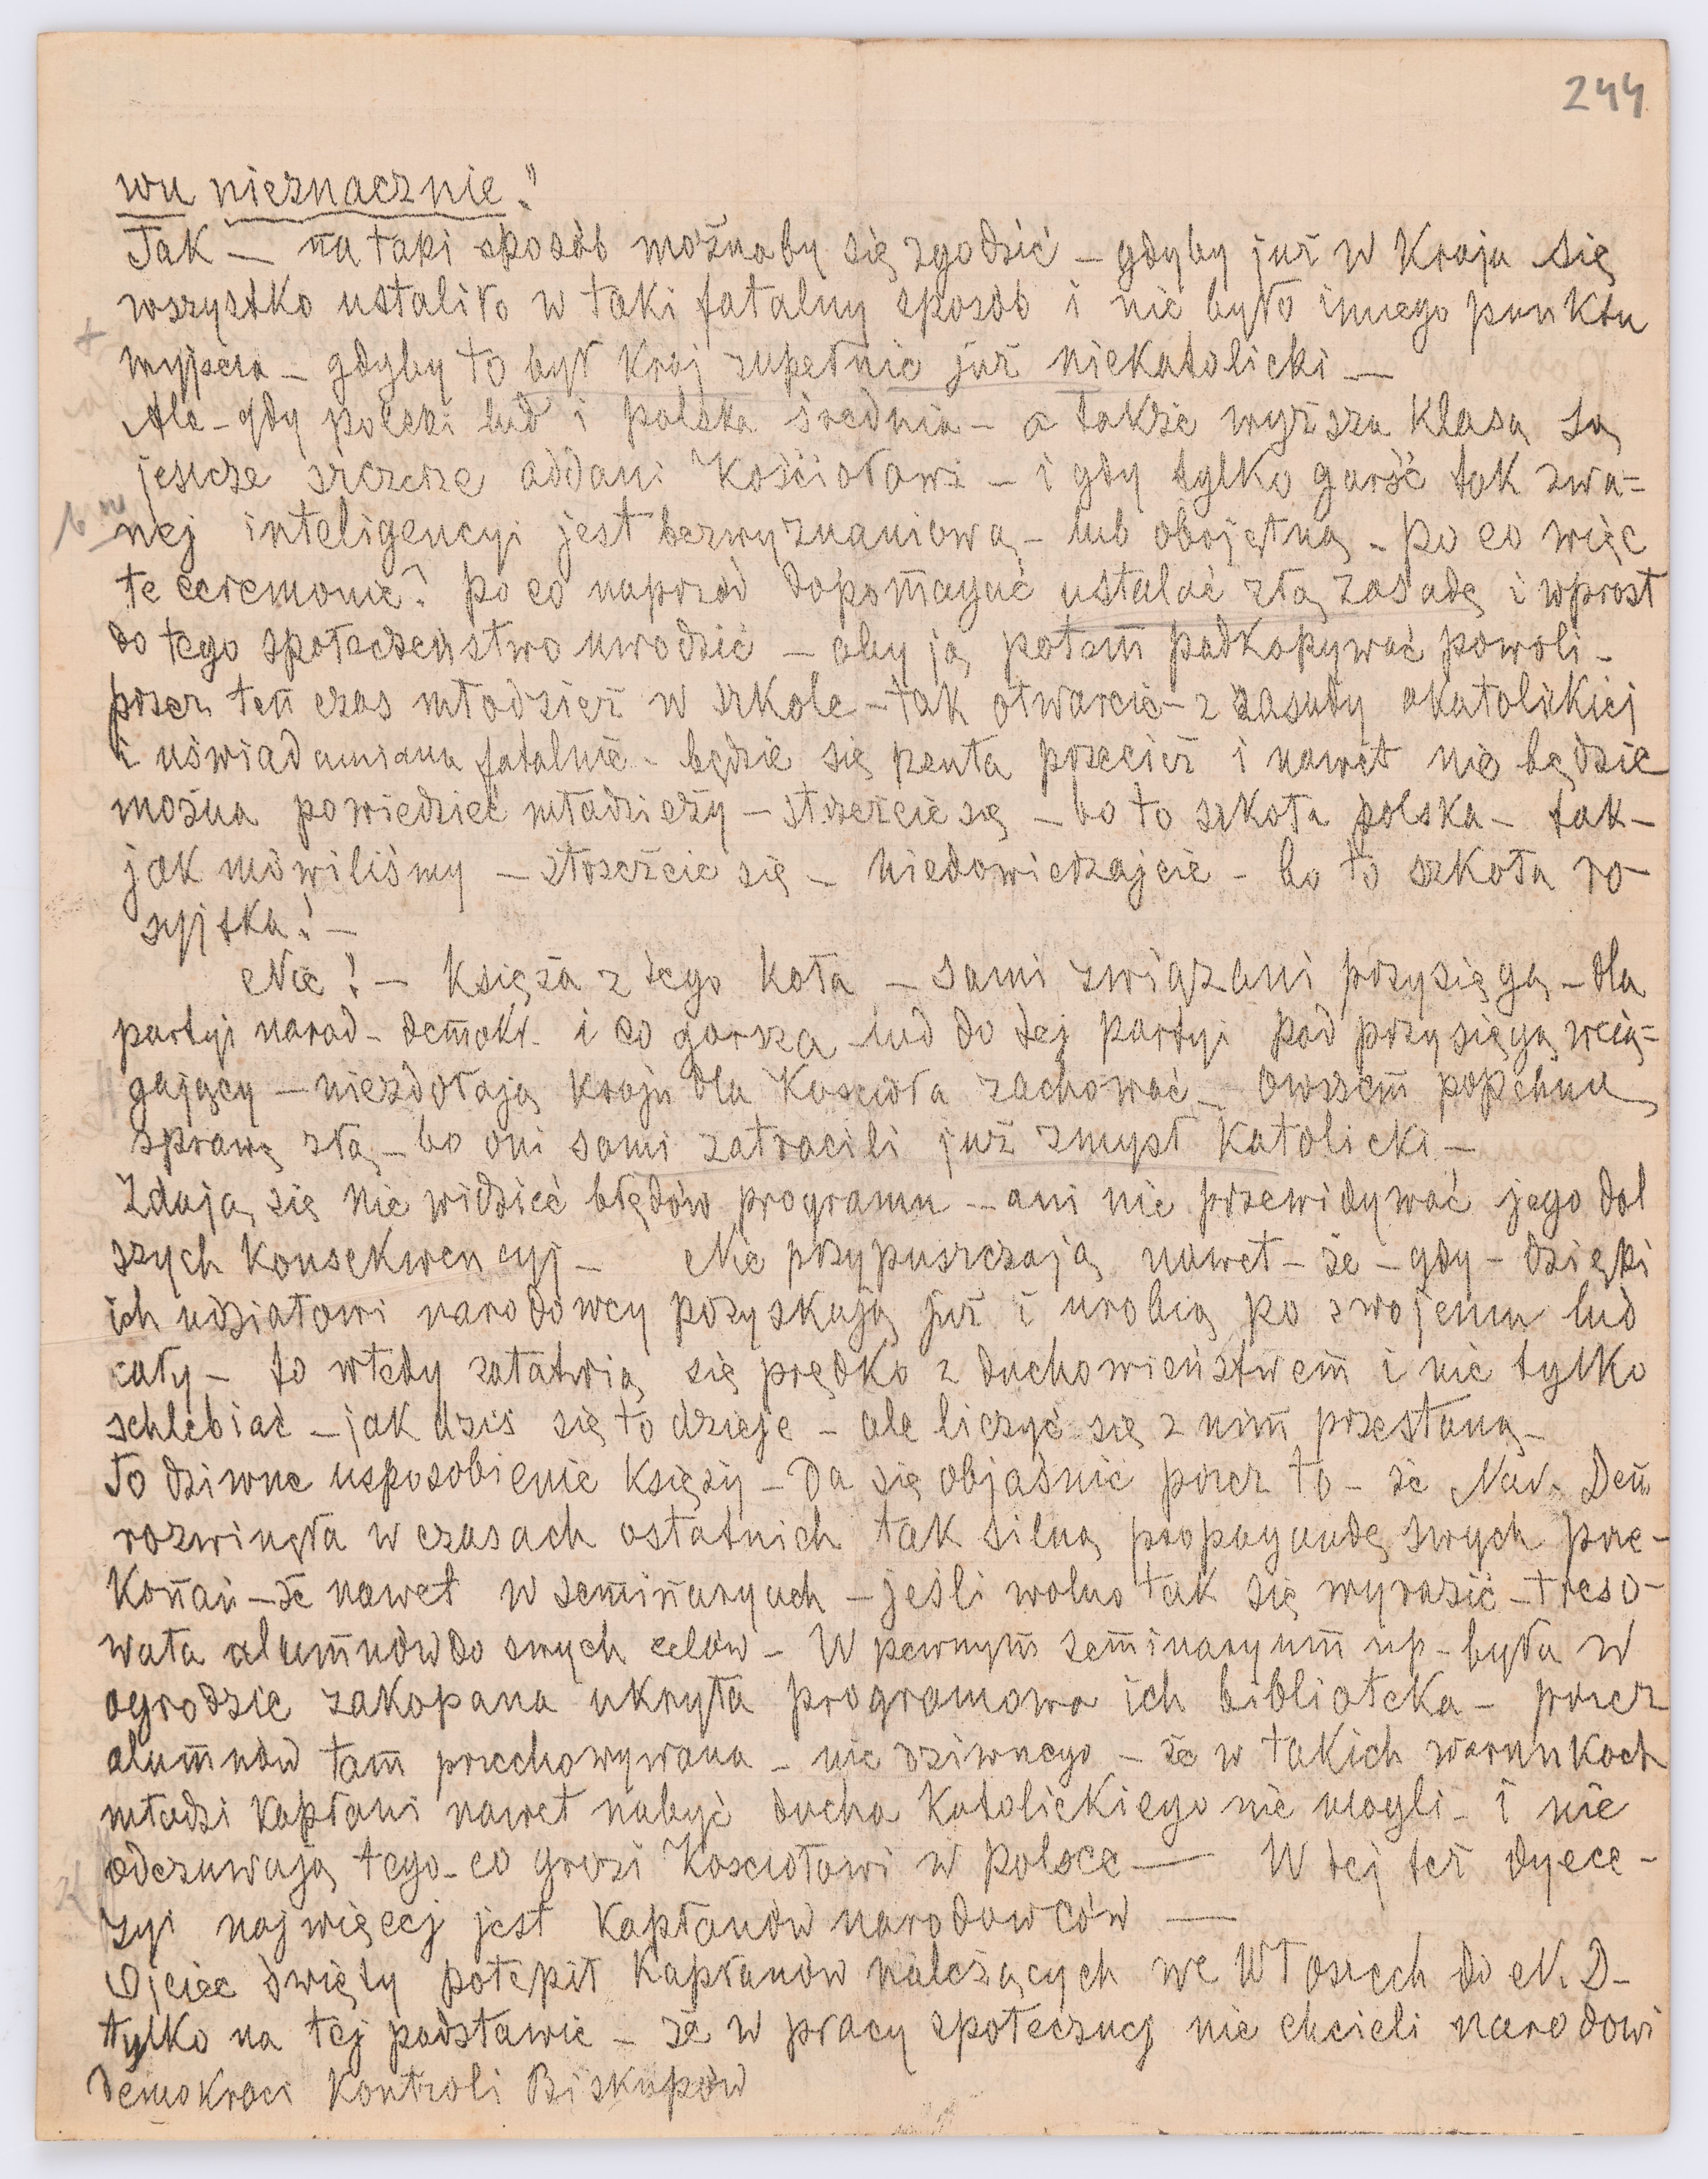 244
wu nieznacznie."
Tak — na taki sposób możnaby się zgodzić — gdyby już w Kraju się
wszystko ustaliło w taki fatalny sposób i nie było innego punktu
wyjścia — gdyby to był Kraj zupełnie już niekatolicki —
Ale — gdy polski lud i polska średnia — a także wyższa klasa są
jeszcze szczerze oddani Kościołowi — i gdy tylko garść tak zwa=
nej inteligencyi jest bezwyznaniową — lub obojętną — po co więc
te ceremonie? po co naprzód dopomagać ustalać złą zasadę i wprost
do tego społeczeństwo uwodzić — aby ją potem podkopywać powoli —
przez ten czas młodzież w szkole — tak otwarcie — z zasady akatolickiej
i uświadamiana fatalnie — będzie się pęta przecież i nawet nie będzie
można powiedzieć młodzieży — strzeżcie się — bo to szkoła polska — tak —
jak mówiliśmy — strzeżcie się — niedowierzajcie — bo to szkoła ro-
syjska! —
Nie! — Księża z tego koła — sami związani przysięgą — dla
partyi narod- demokr. i co gorsza lud do tej partyi pod przysięgą wcią=
gający — niezdołają kraju dla Kościoła zachować — owszem popchną
sprawę złą — bo oni sami zatracili już zmysł Katolicki —
Zdają się nie widzieć błędów programu — ani nie przewidywać jego dal
szych Konsekwencyj — Nie przypuszczają nawet — że — gdy — dzięki
ich udziałowi narodowcy pozyskają już i urobią po swojemu lud
cały — to wtedy załatwią się prędko z duchowieństwem i nie tylko
schlebiać — jak dziś się to dzieje — ale liczyć się z nim przestaną —
To dziwne usposobienie księży — Da się objaśnić przez to — że Nar. Dem
rozwinęła w czasach ostatnich tak silną propagandę swych prze-
Konań — że nawet w seminaryach — jeśli wolno tak się wyrazić — treso-
wała alumnów do swych celów — W pewnym seminaryum np — była w
ogrodzie zakopana ukryta programowa ich biblioteka — przez
alumnów tam przechowywana — nic dziwnego — że w takich warunkach
młodzi kapłani nawet nabyć ducha Katolickiego nie mogli — i nie
odczuwają tego — co grozi Kościołowi w polsce — W tej też dyece-
zyi najwięcej jest Kapłanów narodowców —
Ojciec święty potępił Kapłanów należących we Włoszech do N. D —
tylko na tej podstawie — że w pracy społecznej nie chcieli narodowi
demokraci Kontroli Biskupów